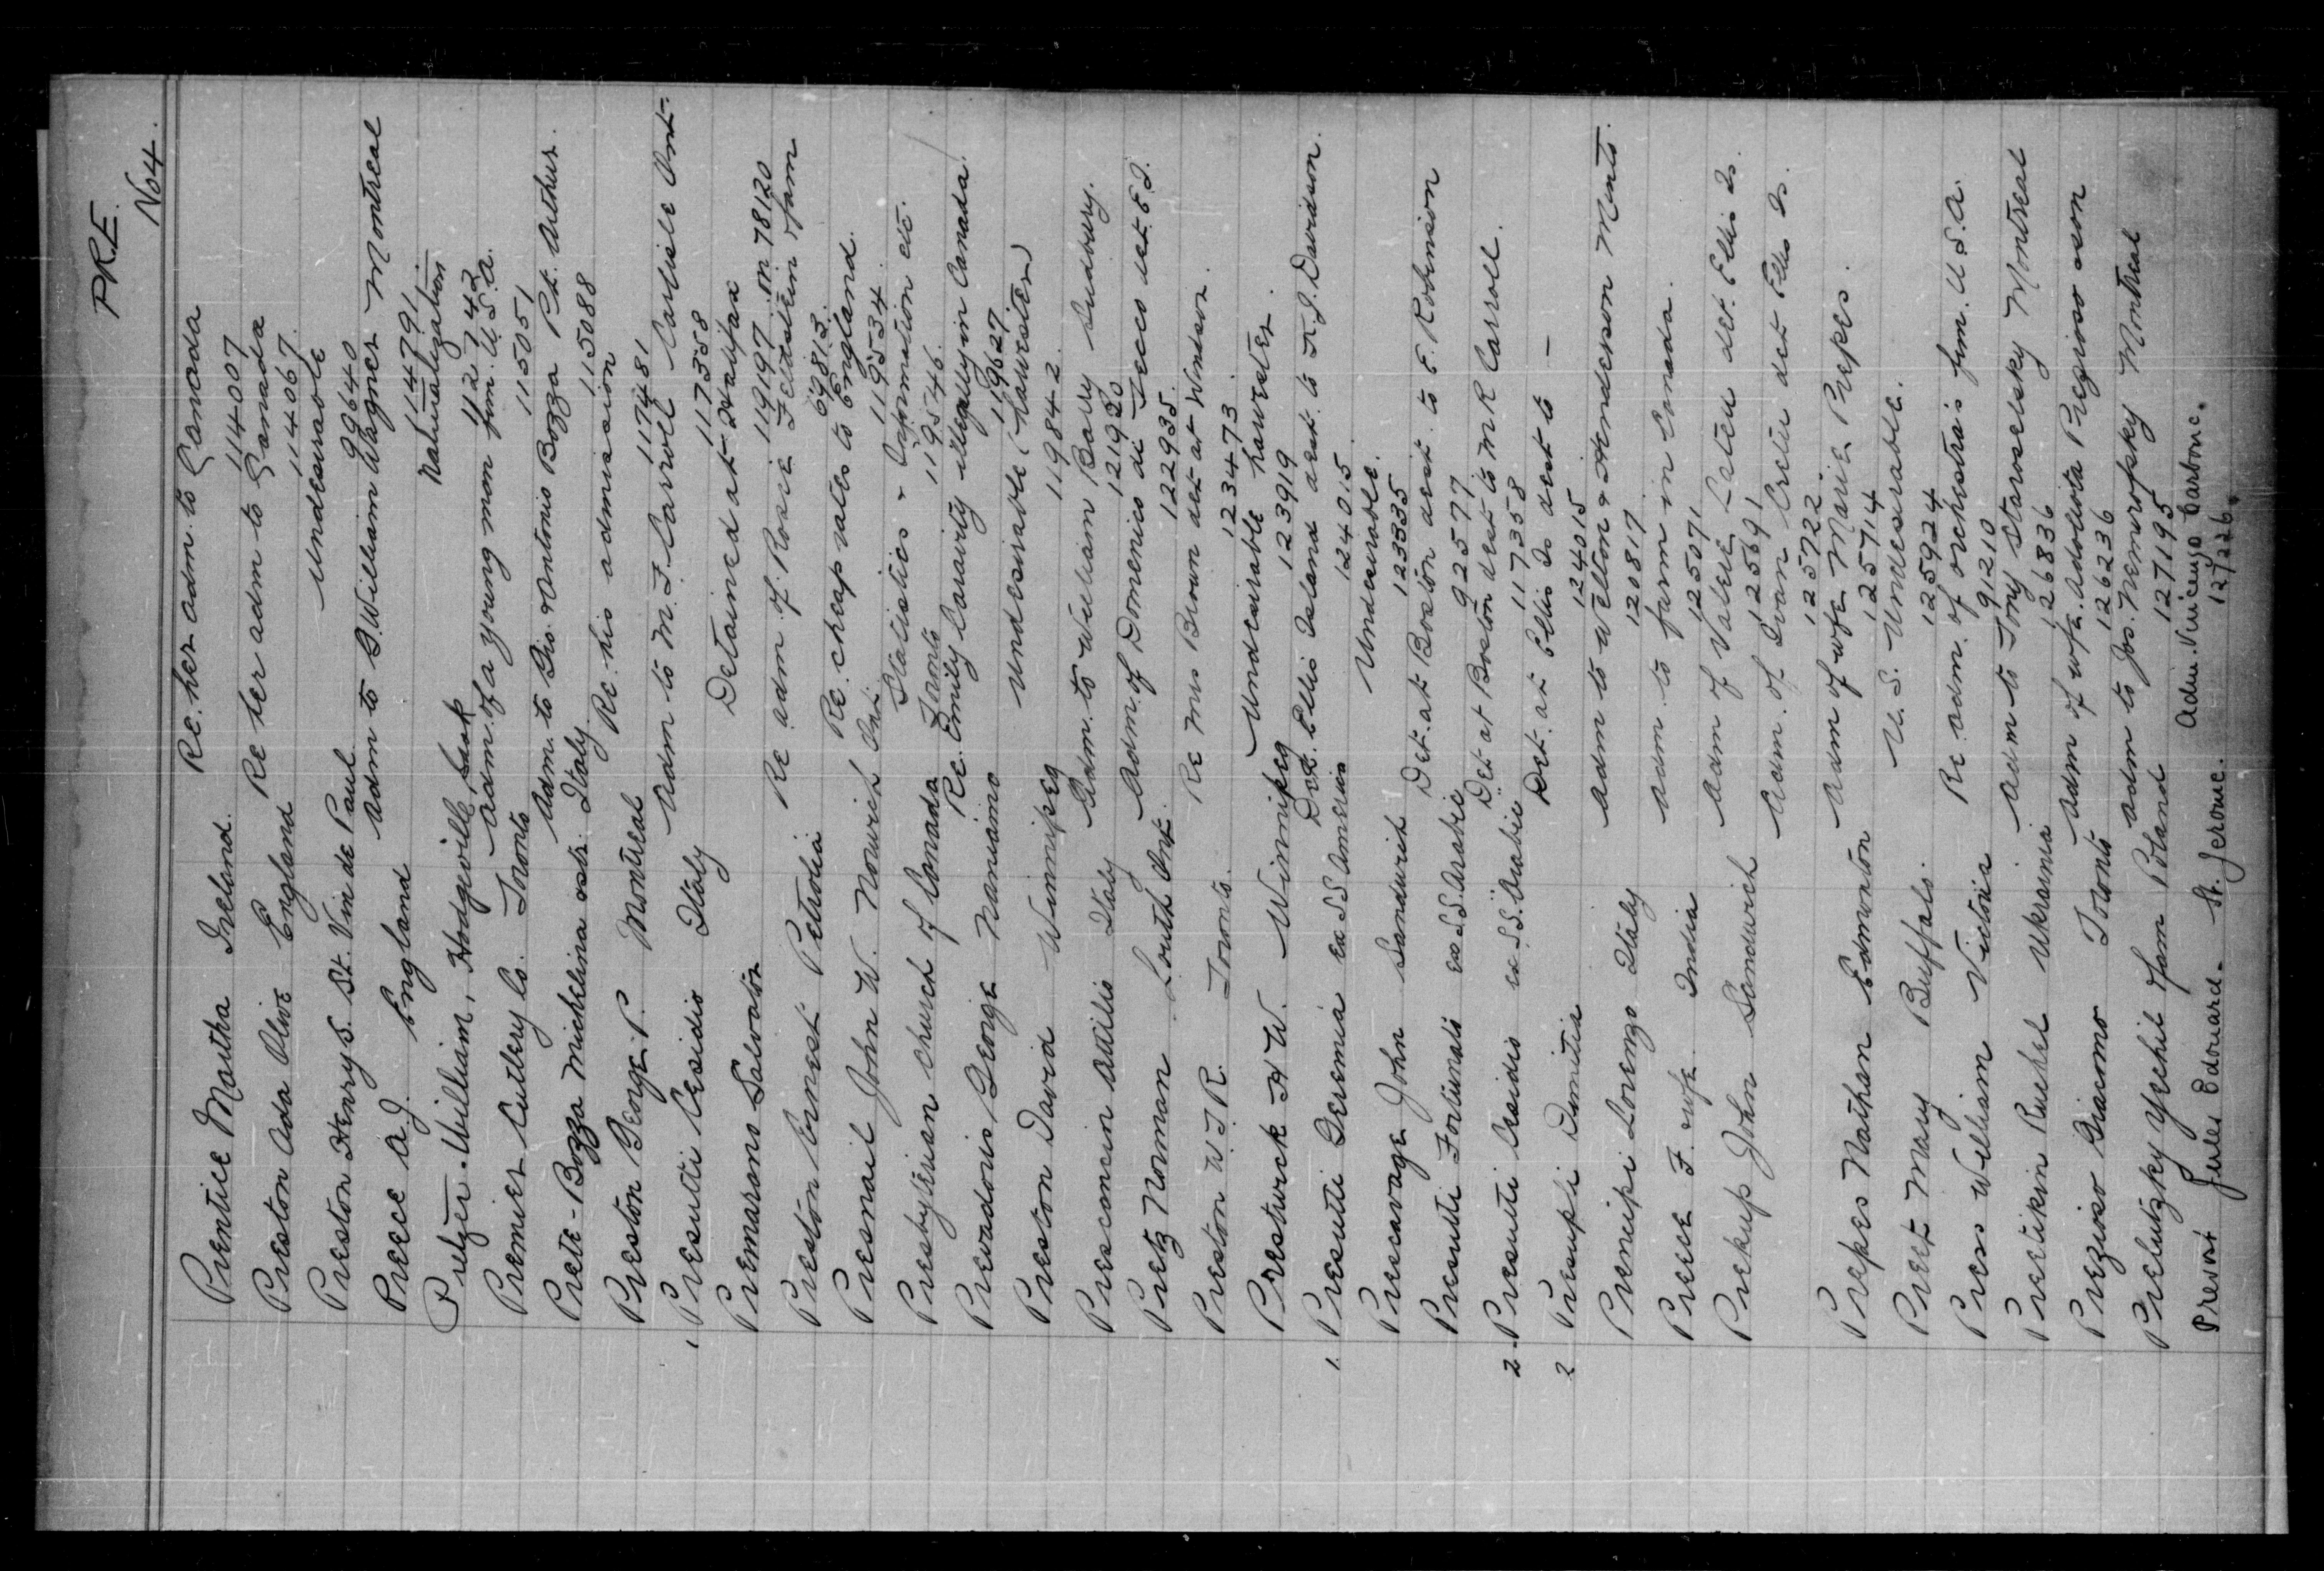 PRE.
No 4.
Prentice Martha Ireland. Re. her adm. to Canada
114007
Preston Ada Olive England Re her adm to Canada
114067
Preston Henry S. St. Vin de Paul undesirable
99640
Preece A. J. England adm to G. William Wagner Montreal
114791
Prelzer. William, Hodgeville Sask Naturalization
112742
Premier Cutlery Co. Toronto adm. of a young man fim. U.S.A.
115051
Prete-Bozza Michelina Italy adm. to Gio. Antonio Bozza Pt. Arthur.
115088
Preston George P. Montreal Re. his admission
117481
1. Presutti Cesidio Italy adm to M. F. Carroll Carlisle Ont.
117358
Premarano Salvator Detained at Halifax
119197. in 78120
Preston Ernest Petrolia Re adm of. Rosie Feldstein fam
69813.
Presnail John W. Norwich Ont Re. cheap rates to England.
119534
Presbyterian Church of Canada Toronto Statistics & Information etc.
119546
Prevadoris George Nanaimo Re. Emily Caravity illegally in Canada.
119627.
Preston David Winnipeg undesirable (harvester)
119842.
Presconcin Attilio Italy Adm. to William Barry Sudbury.
121920
Pretz Norman Louth Ont. adm. of Domenico di Tecco det. E.I.
122935.
Preston W.J.R. Toronto. Re Mrs Brown det at Windsor.
123473
Prestwick H W. Winnipeg undesirable harvester.
123919
1. Presutti Geremia ex SS America Det. Ellis Island dest. to H. J. Davidson.
124015.
Prescavage John Sandwich Undesirable.
123335
Presutti Fortunato ex S.S. Arabic Det. at Boston dest. to E. Robinson
92577
2 Presutti Cesidio ex S.S. Arabic Det at Boston dest to M R Carroll.
117358
2 Presupti Dimitia Det. at Ellis Is dest to —
124015
Premcipi Lorenzo Italy adm to Welton & Henderson Mento.
120817
Preece F. wife India adm. to farm in Canada.
125071
Prekup John Sandwich adm of Valere Lateu det. Ellis Is.
125691
adm. of Ivan Cretu det Ellis Is.
125722
Prepes Nathan Edmonton adm of wfe Marie Prepes.
125714
Preet Mary Buffalo. U.S. undesirable.
125924
Press William Victoria Re adm. of orchestra's fim. U.S.A.
91210
Pretikin Ruchel Ukrainia adm to Tony Staroselsky Montreal
126836
Prezioso Giacomo Toronto adm of wfe. Adolivota Pregioso & son
126236
Prelutzky Yechil fam Poland adm to Jos. Nemirofsky Montreal
127195
Prevost Jules Edouard. St. Jerome. adm. Vincenzo Carbone.
127226.